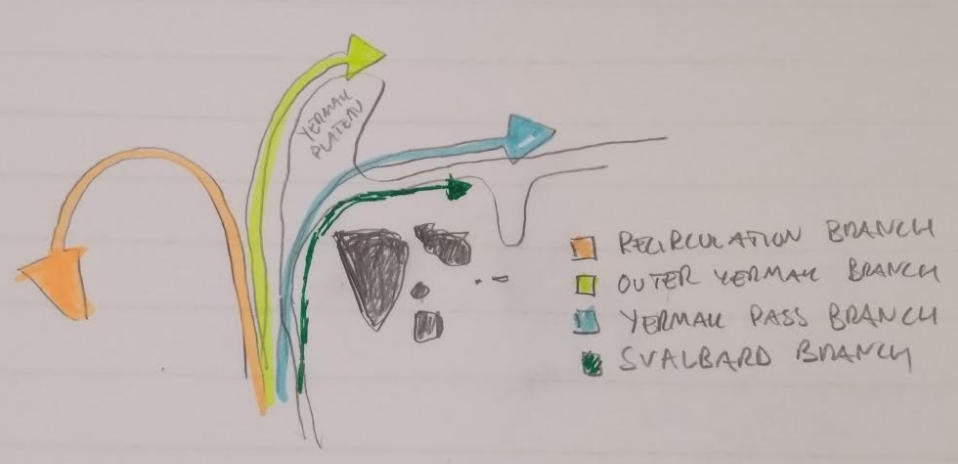 YERMAK
PLATEAU
RECIRCULATION BRANCH
OUTER YERMAK BRANCH
YERMAK PASS BRANCH
SVALBARD BRANCH